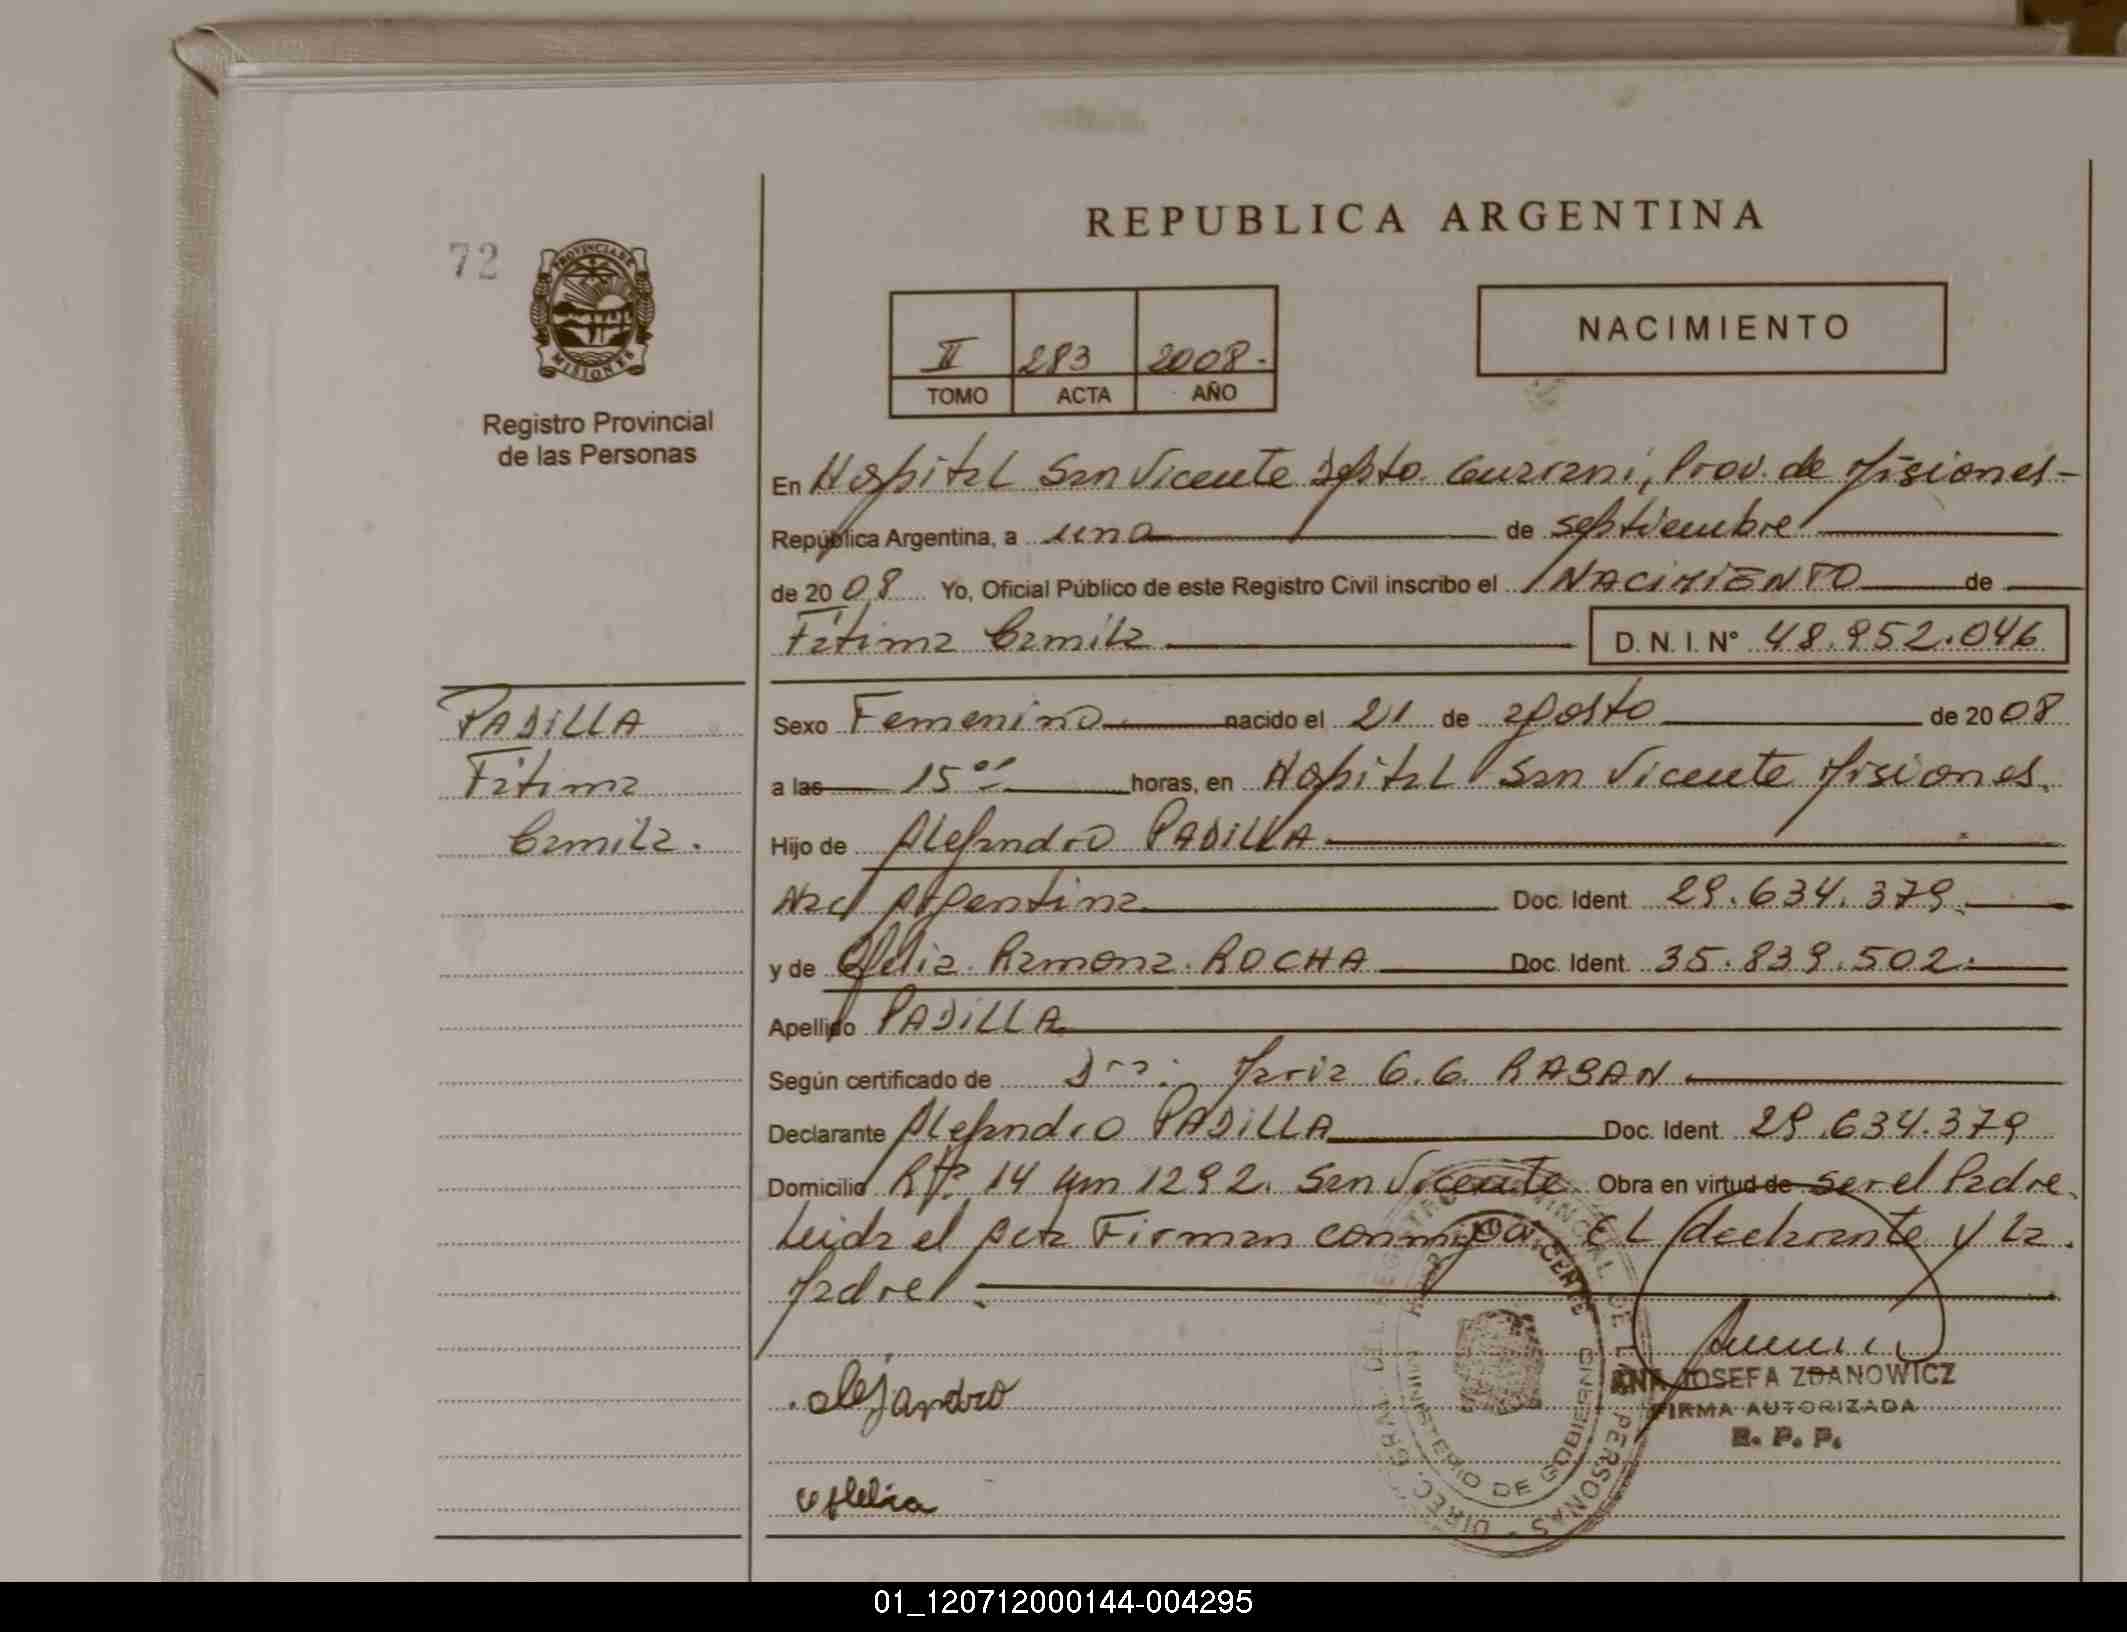 REPUBLICA ARGENTINA
72
PROVINCIA DE
MISIONES
Registro Provincial
de las Personas
II 283 2008.-
TOMO ACTA AÑO
NACIMIENTO
En Hospital San Vicente Dpto. Guarani, Prov. de Misiones-
República Argentina, a una de septiembre
de 2008 Yo, Oficial Público de este Registro Civil inscribo el NACIMIENTO de
Fátima Camila D. N. I. N° 48.952.046
PADILLA
Fátima
Camila.
Sexo Femenino nacido el 21 de agosto de 2008
a las 15 horas, en Hospital San Vicente Misiones.
Hijo de Alejandro PADILLA
Nac Argentina Doc. Ident. 29.634.379.
y de Ofelia Ramona ROCHA Doc. Ident. 35.839.502.
Apellido PADILLA
Según certificado de Dra: Maria G.G. RASAN
Declarante Alejandro PADILLA Doc. Ident. 29.634.379
Domicilio Rta. 14 Km 1292. San Vicente. Obra en virtud de ser el Padre.
Leida el Acta Firman conmigo, El declarante y la
Madre.
alejandro
ANA JOSEFA ZDANOWICZ
FIRMA AUTORIZADA
R. P. P.
DIREC. GRAL. DEL REGISTRO PROVINCIAL DE LAS PERSONAS
MINISTERIO DE GOBIERNO
01_120712000144-004295